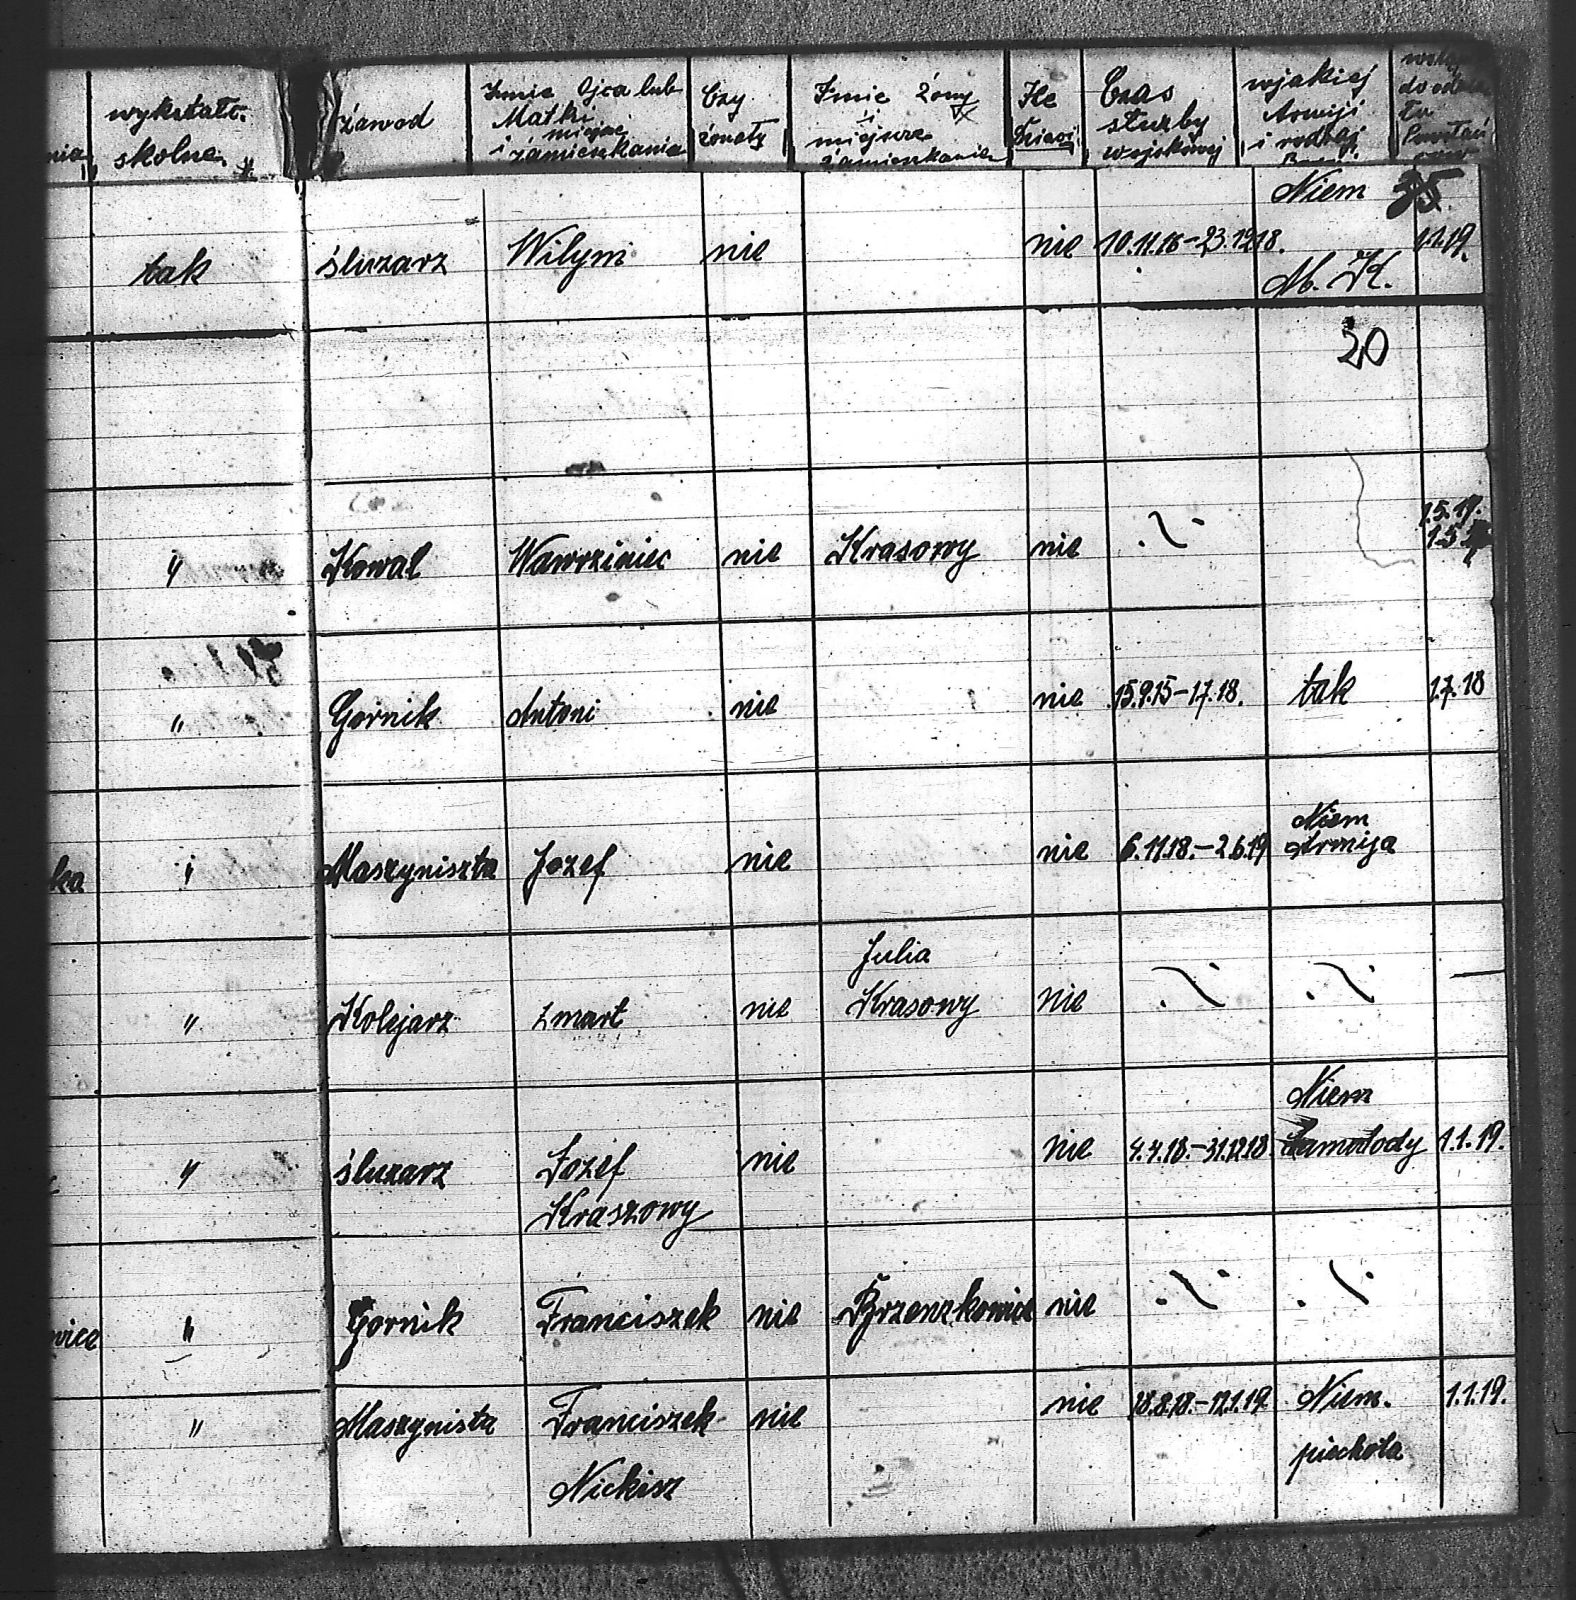 wykształc. skolne
zawod
Imie Ojca lub Matki i miejsc zamieszkania
Czy żonaty
Imie Żony i miejsce zamieszkania
Ile Dzieci
Czas służby wojskowej
wjakiej Armiji i rodzaj
tak śluzarz Wilym nie nie 10.11.16-23.12.18. Niem 1.1.19.
M. K.
20
" Kowal Wawrziniec nie Krasowy nie . \ . 1.5.19.
" Gornik Antoni nie nie 15.9.15-1.7.18. tak 1.7.18
" Maszyniszta Jozef nie nie 6.11.18.-2.6.19 Niem Armija
Julia
" Kolejarz zmart nie Krasowy nie . \ . . \ . —
Niem
" śluzarz Jozef nie nie 4.4.18.-31.12.18. Samolody 1.1.19.
Kraszowy
wice " Gornik Franciszek nie Brzenzkowice nie . \ . . \ .
" Maszynista Franciszek nie nie 18.8.18.-12.1.19. Niem. 1.1.19.
Nickisz piechota